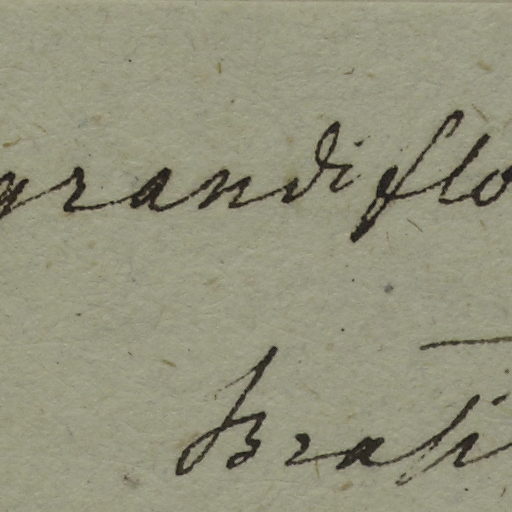 grandiflo
Brasi